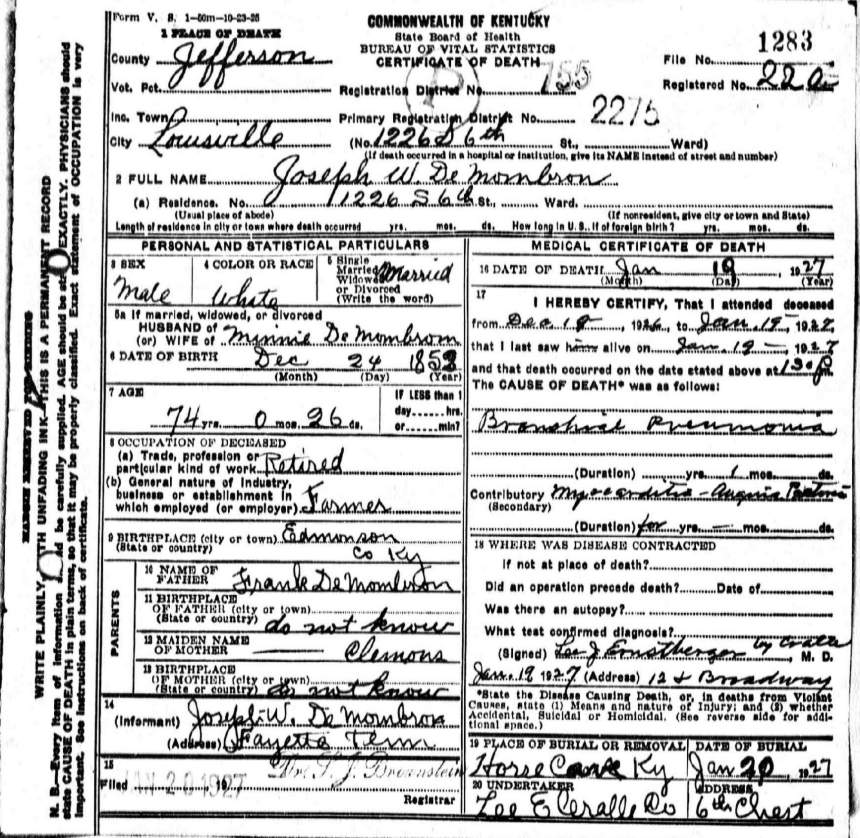 Form V. S. 1-50m-10-23-25
COMMONWEALTH OF KENTUCKY
State Board of Health
BUREAU OF VITAL STATISTICS
CERTIFICATE OF DEATH
1283
1 PLACE OF DEATH
County Jefferson
File No.
Vot. Pct.
Registration District No. 755
Registered No. 220
Inc. Town
Primary Registration District No. 2275
City Louisville
(No. 1226 S 6th St., Ward)
(If death occurred in a hospital or institution, give its NAME instead of street and number)
2 FULL NAME Joseph W. De Mombron
(a) Residence. No. 1226 S 6th St., Ward.
(Usual place of abode) (If nonresident, give city or town and State)
Length of residence in city or town where death occurred yrs. mos. ds. How long in U. S., if of foreign birth? yrs. mos. ds.
PERSONAL AND STATISTICAL PARTICULARS
3 SEX Male
4 COLOR OR RACE White
5 Single Married Widowed or Divorced (Write the word) Married
5a If married, widowed, or divorced
HUSBAND of
(or) WIFE of Minnie De Mombrom
6 DATE OF BIRTH Dec 24 1852
(Month) (Day) (Year)
7 AGE
74 yrs. 0 mos. 26 ds.
IF LESS than 1
day......hrs.
or......min?
8 OCCUPATION OF DECEASED
(a) Trade, profession or
particular kind of work Retired
(b) General nature of industry,
business or establishment in
which employed (or employer) Farmer
9 BIRTHPLACE (city or town) Edmonson
(State or country) Co Ky
PARENTS
10 NAME OF
FATHER Frank De Mombron
11 BIRTHPLACE
OF FATHER (city or town)
(State or country) do not know
12 MAIDEN NAME
OF MOTHER Clemons
13 BIRTHPLACE
OF MOTHER (city or town)
(State or country) do not know
14
(Informant) Joseph W. De Mombron
(Address) Fayette Tenn
15
Filed JAN 20 1927
Registrar
MEDICAL CERTIFICATE OF DEATH
16 DATE OF DEATH Jan 19, 1927
(Month) (Day) (Year)
17
I HEREBY CERTIFY, That I attended deceased
from Dec 18, 1926, to Jan. 19-, 1927,
that I last saw him alive on Jan. 19-, 1927
and that death occurred on the date stated above at
The CAUSE OF DEATH* was as follows:
Bronchial Pneumonia
(Duration) yrs. 1 mos. ds.
Contributory Myocarditis - Angina Pectoris
(Secondary)
(Duration) for yrs. - mos. ds.
18 WHERE WAS DISEASE CONTRACTED
If not at place of death?
Did an operation precede death? Date of
Was there an autopsy?
What test confirmed diagnosis?
(Signed) Lee J. Ernstberger by Cralle, M. D.
Jan. 19 1927 (Address) 12 & Broadway
*State the Disease Causing Death, or, in deaths from Violent
Causes, state (1) Means and nature of Injury; and (2) whether
Accidental, Suicidal or Homicidal. (See reverse side for addi-
tional space.)
19 PLACE OF BURIAL OR REMOVAL
Horse Cave Ky
DATE OF BURIAL
Jan 20, 1927
20 UNDERTAKER
Lee E Cralle Co
ADDRESS
6th Chest
MARGIN RESERVED FOR BINDING
WRITE PLAINLY WITH UNFADING INK—THIS IS A PERMANENT RECORD
N. B.—Every item of information should be carefully supplied. AGE should be stated EXACTLY. PHYSICIANS should
state CAUSE OF DEATH in plain terms, so that it may be properly classified. Exact statement of OCCUPATION is very
important. See instructions on back of certificate.